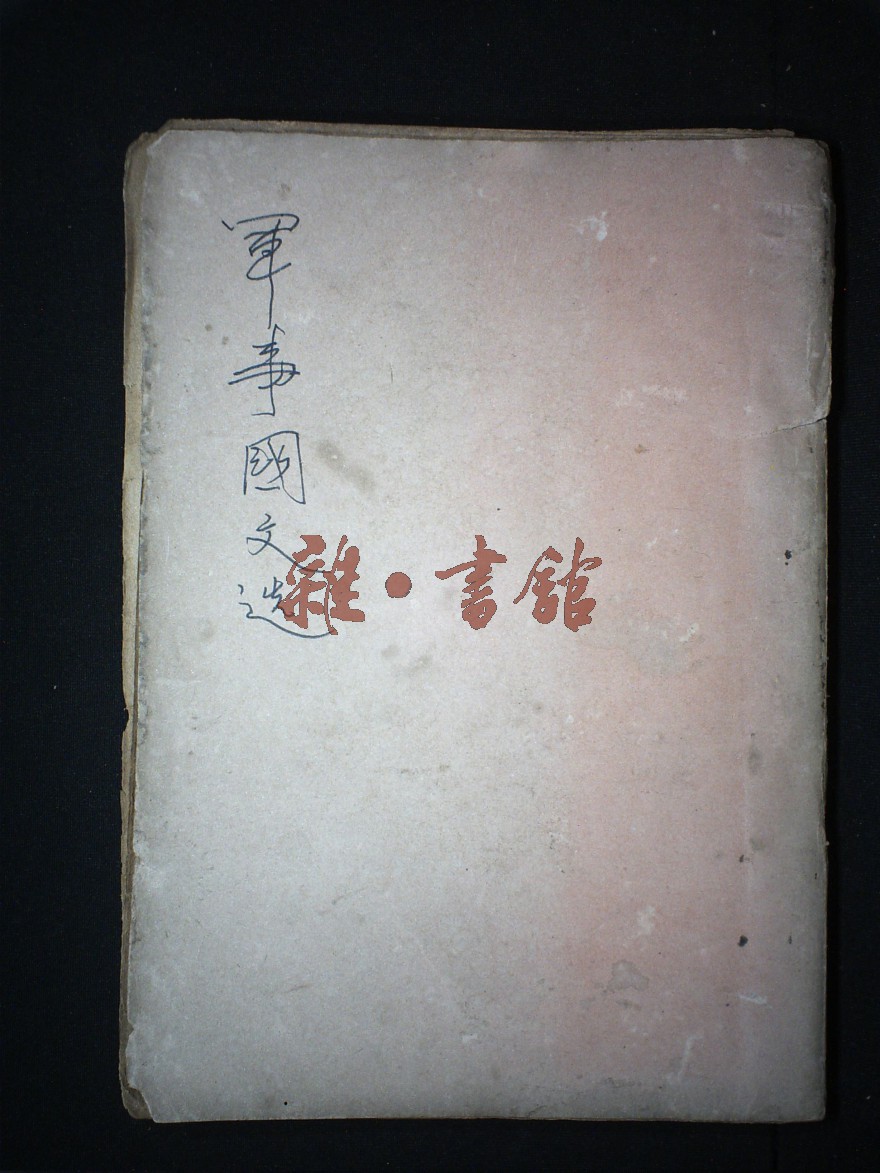 軍事國文选
雜·書館